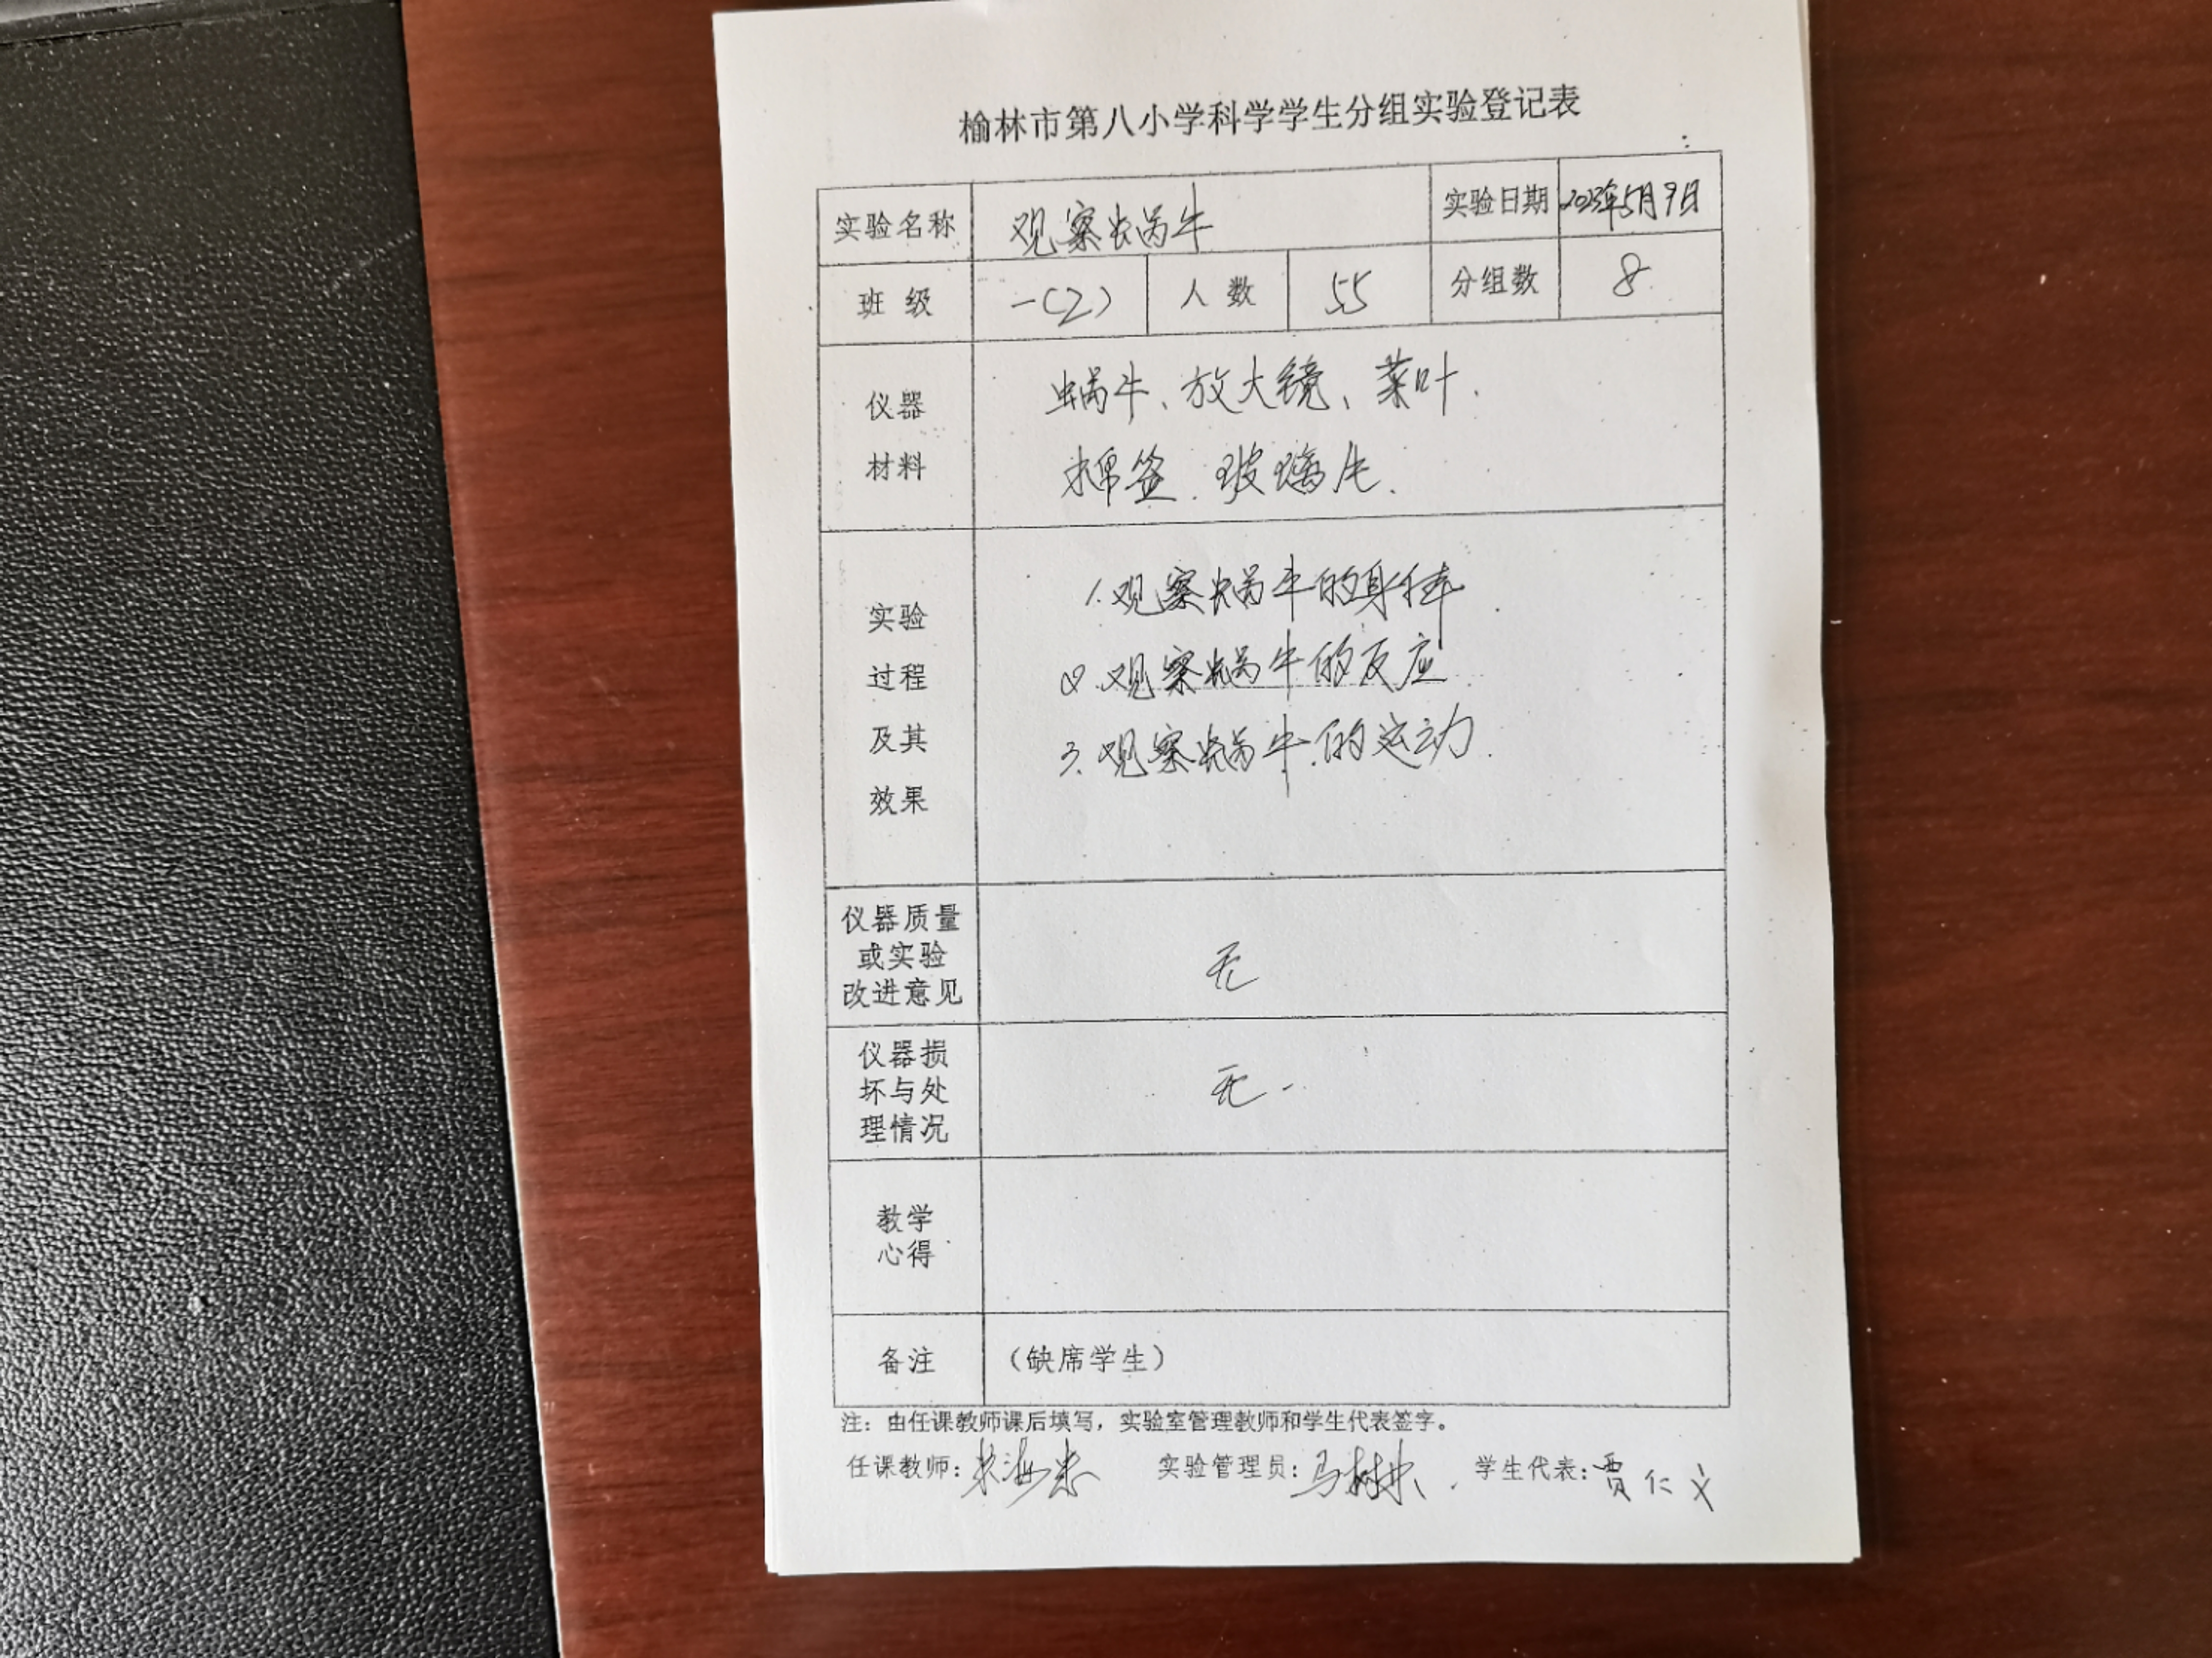 榆林市第八小学科学学生分组实验登记表
实验名称 观察蜗牛 实验日期 2023年5月9日
班 级 一(2) 人 数 55 分组数 8
仪器
材料
蜗牛、放大镜、菜叶.
棉签.玻璃片.
实验
过程
及其
效果
1.观察蜗牛的身体
2.观察蜗牛的反应
3.观察蜗牛的运动.
仪器质量
或实验
改进意见
无
仪器损
坏与处
理情况
无.
教学
心得
备注 (缺席学生)
注：由任课教师课后填写，实验室管理教师和学生代表签字。
任课教师: 实验管理员: 学生代表:贾仁义